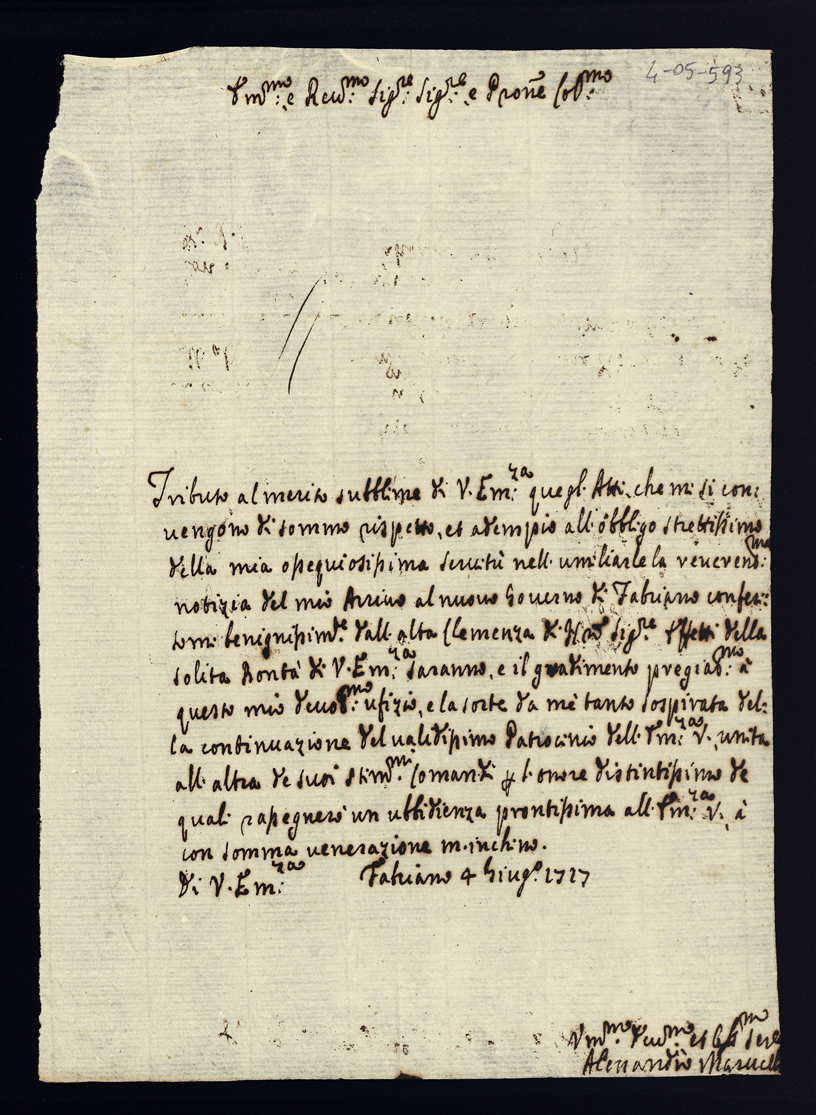 4-05-593
Em̃:mo e Reũ:mo Sig:re Sig:re e Prone Col:mo
Tributo al merito subblime di V. Em:za quegl' Atti, che mi si con:
vengono di sommo rispetto, et adempio all' obbligo strettissimo
della mia ossequiosissima servitù nell' umiliarle la reverend:ma
notizia del mio Arrivo al nuovo Governo di Fabriano confer:
tomi benignissim:e dall' alta Clemenza di Sig:re Effetti della
solita Bontà di V. Em:za saranno, e il gradimento pregiad:mo à
questo mio devot:mo ufizio, e la sorte da me tanto sospirata del:
la continuazione del validissimo Patrocinio dell' Em:za V. unita
all' altra de suoi stim:mi Comandi, l' onore distintissimo de
quali rassegnerò un ubbidienza prontissima all' Em:za V., à
con somma venerazione m' inchino.
Di V. Em:za Fabriano 4 Giug:o 1727
Um:mo Deu:mo et Serv:
Alessandro